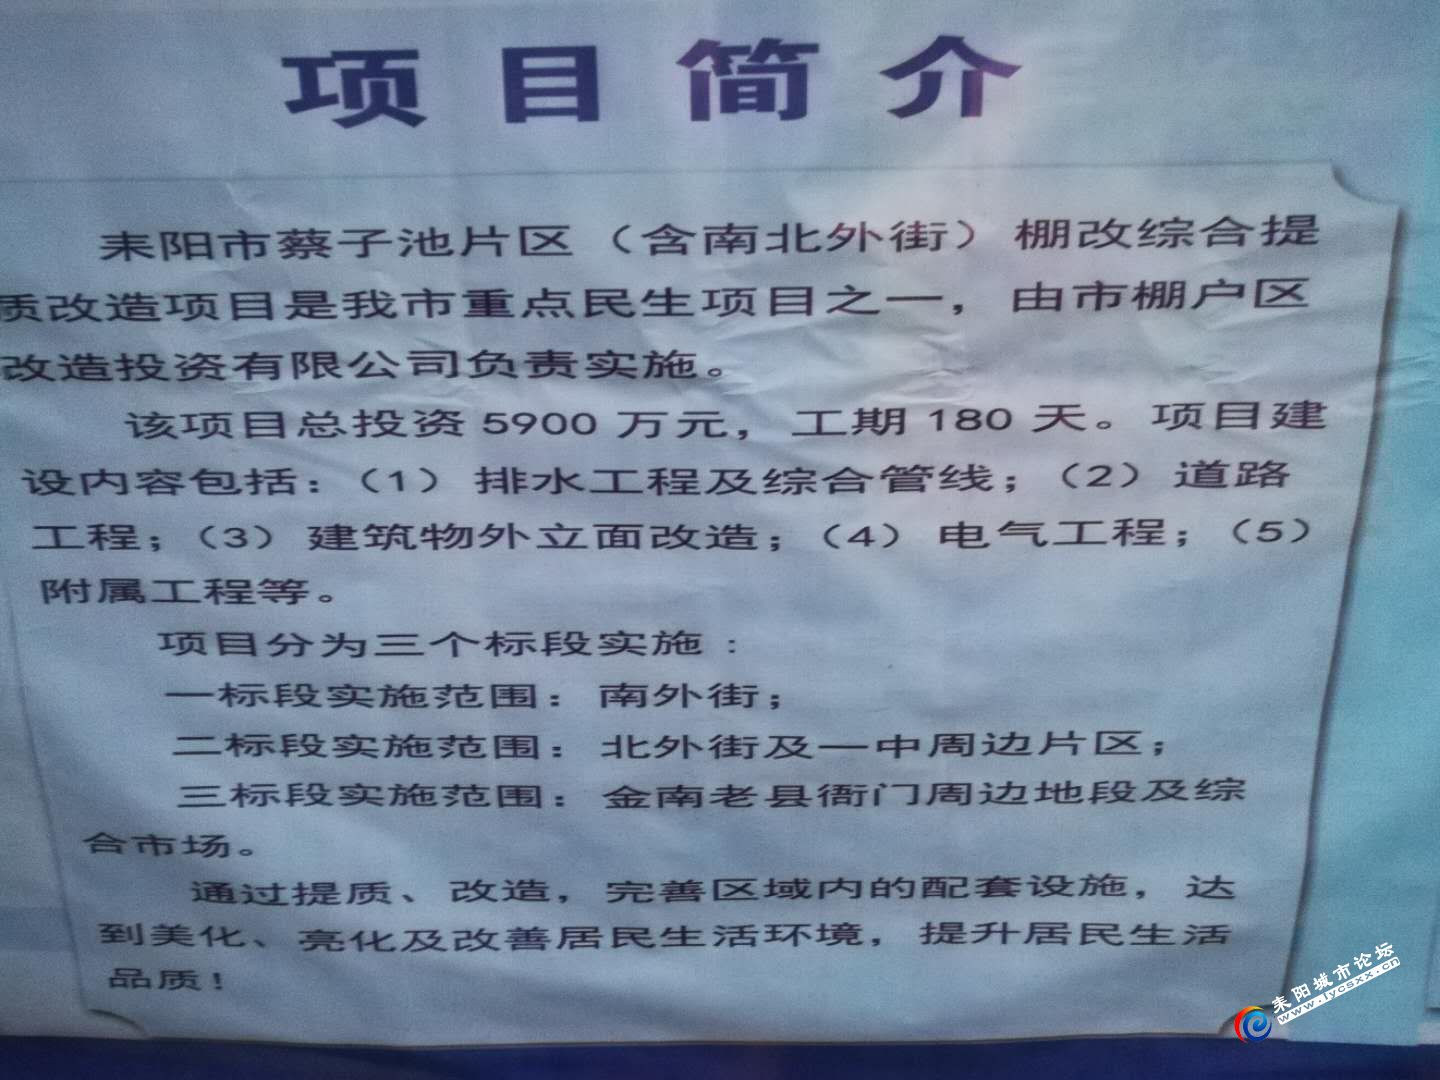 项目简介
耒阳市蔡子池片区（含南北外街）棚改综合提
质改造项目是我市重点民生项目之一，由市棚户区
改造投资有限公司负责实施。
该项目总投资5900万元，工期180天。项目建
设内容包括：（1）排水工程及综合管线；（2）道路
工程；（3）建筑物外立面改造；（4）电气工程；（5）
附属工程等。
项目分为三个标段实施：
一标段实施范围：南外街；
二标段实施范围：北外街及一中周边片区；
三标段实施范围：金南老县衙门周边地段及综
合市场。
通过提质、改造，完善区域内的配套设施，达
到美化、亮化及改善居民生活环境，提升居民生活
品质！
耒阳城市论坛
www.lycsxx.cn